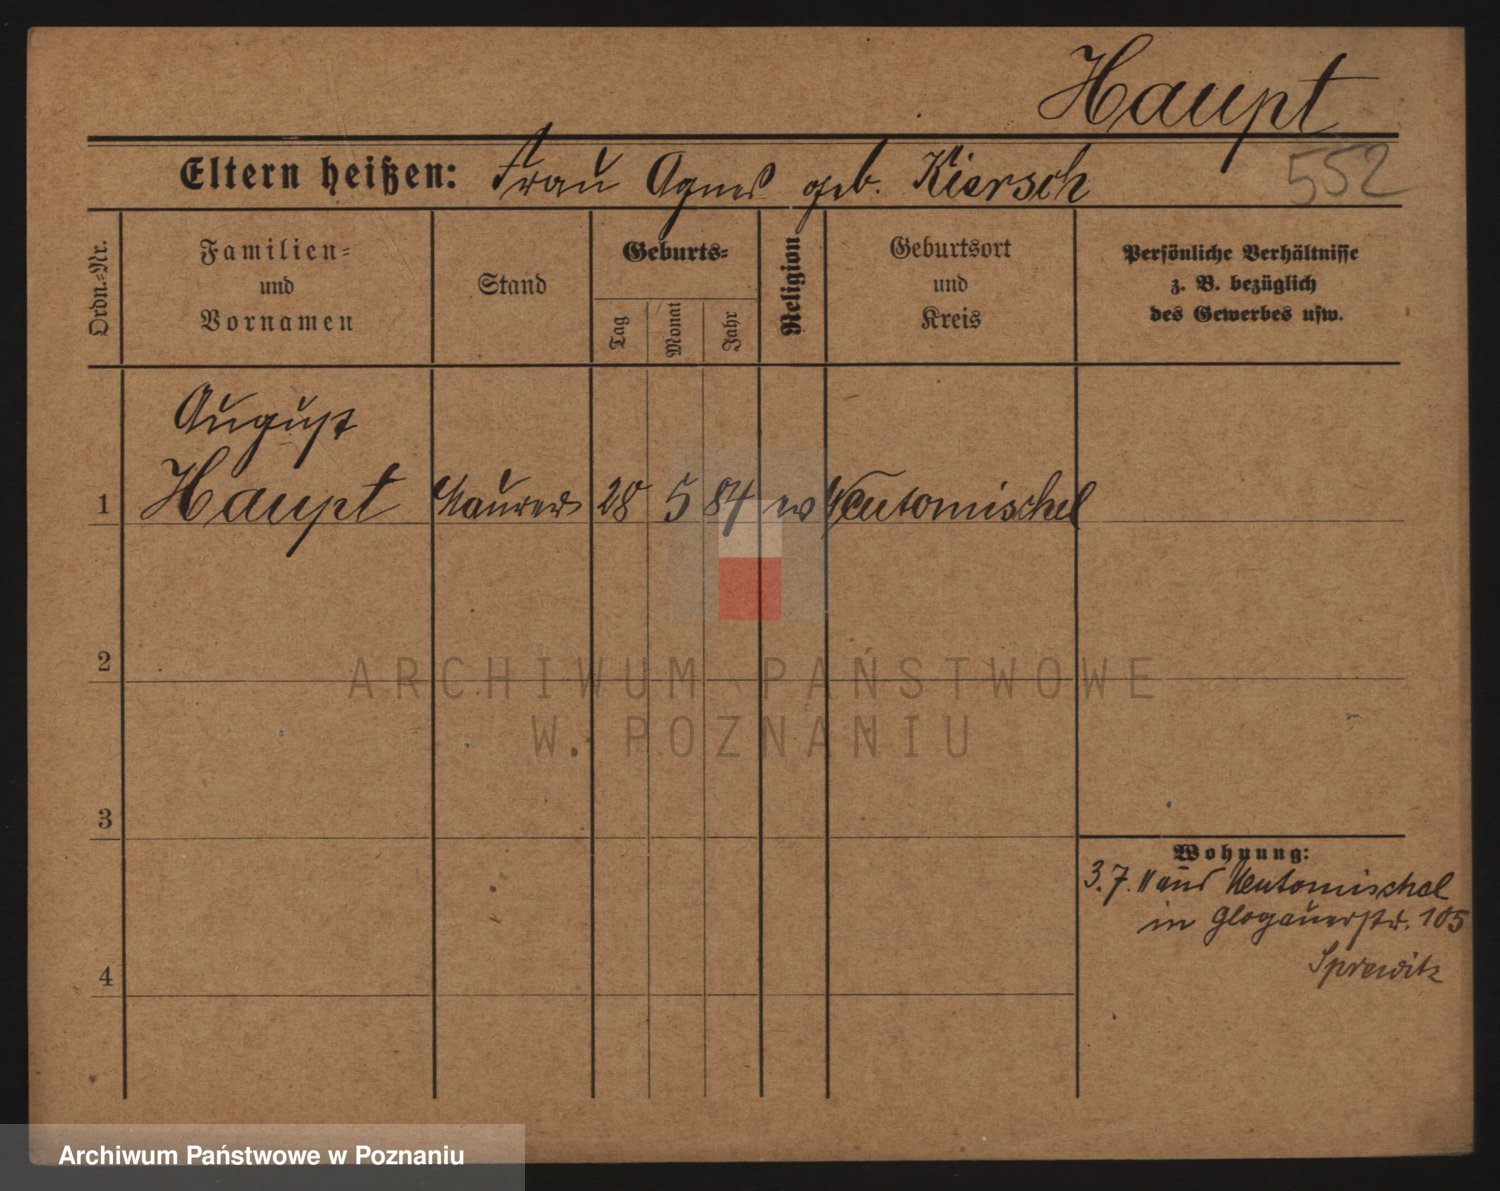 Haupt
552
Eltern heißen: Frau Agnes geb. Kiersch
Ordn.-Nr.
Familien-
und
Vornamen
Stand
Geburts-
Tag
Monat
Jahr
Religion
Geburtsort
und
Kreis
Persönliche Verhältnisse
z. B. bezüglich
des Gewerbes usw.
August
1 Haupt Maurer 28 5 84 Neutomischel
2
ARCHIWUM PAŃSTWOWE
W POZNANIU
3
Wohnung:
3.7.11 aus Neutomischel
in Glogauerstr. 105
4
Archiwum Państwowe w Poznaniu